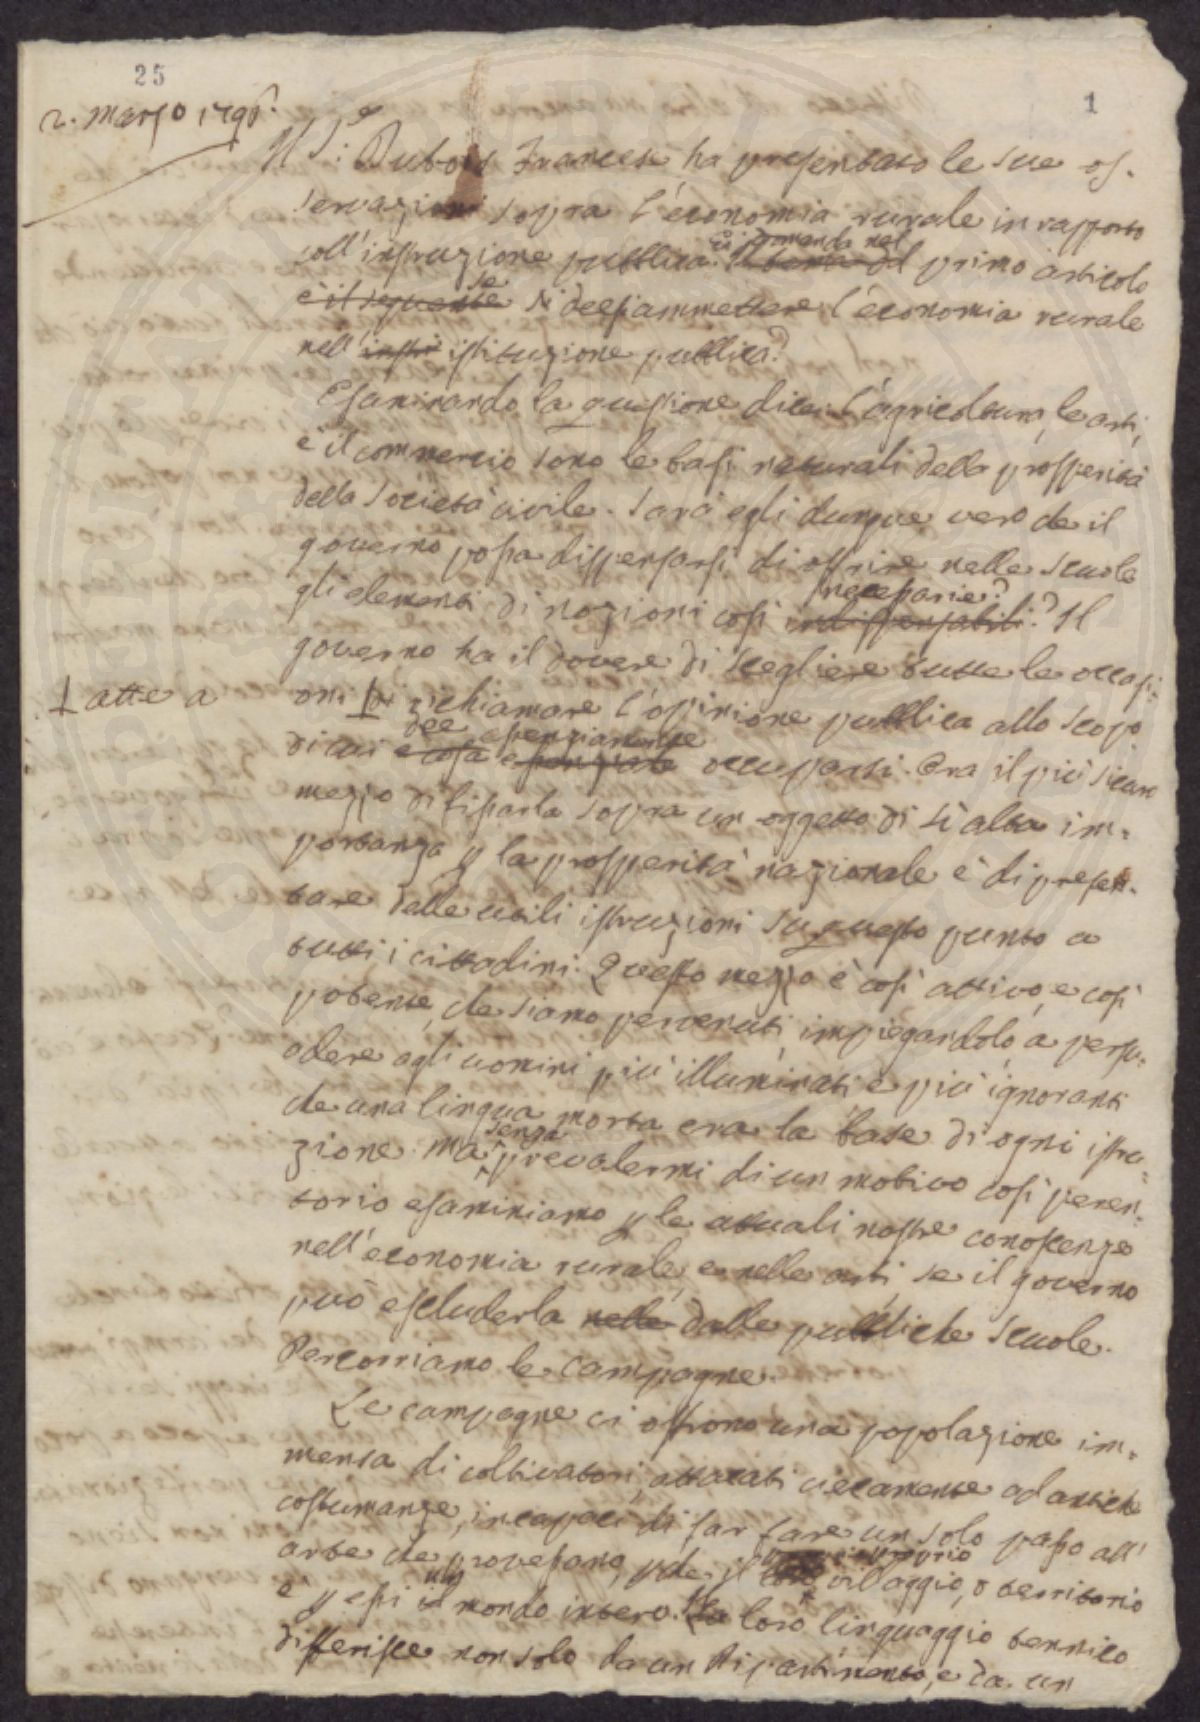 25
1
2. Marzo 1798.
Il S.e Dubois Francese ha presentato le sue os-
servazioni sopra l'economia rurale in rapporto
coll'instruzione pubblica. si domanda nel primo articolo
è il seguente se si deesi ammettere l'economia rurale
nell' instru istituzione pubblica?
Esaminando la questione dice: l'agricoltura, le arti,
e il commercio sono le basi naturali della prosperità
della società civile. Sarà egli dunque vero che il
governo possa dispensarsi di offrire nelle scuole
gli elementi di nozioni così indispensabili? necessarie? Il
governo ha il dovere di scegliere tutte le occasi-
atte a
oni di richiamare l'opinione pubblica allo scopo
di cui e cosa essenziale dee essenzialmente occuparsi. Ora il più sicuro
mezzo di fissarla sopra un oggetto di sì alta im-
portanza p la prosperità nazionale è di presen-
tare delle utili istruzioni su questo punto a
tutti i cittadini. Questo mezzo è così attivo, e così
potente, che siamo pervenuti impiegandolo a persu-
adere agli uomini più illuminati e più ignoranti
che una lingua morta era la base di ogni istru-
zione. Ma senza prevalermi di un motivo così peren-
torio esaminiamo p le attuali nostre conoscenze
nell'economia rurale, e nelle arti, se il governo
può escluderla nelle dalle pubbliche scuole.
Percorriamo le campagne.
Le campagne ci offrono una popolazione im-
mensa di coltivatori, attacati ciecamente ad antiche
costumanze, incapaci di far fare un solo passo all'
arte che professano, pche il loro proprio villaggio, o territorio
è p essi un mondo intero. Il loro linguaggio tennico
differisce non solo da un dipartimento, e da un